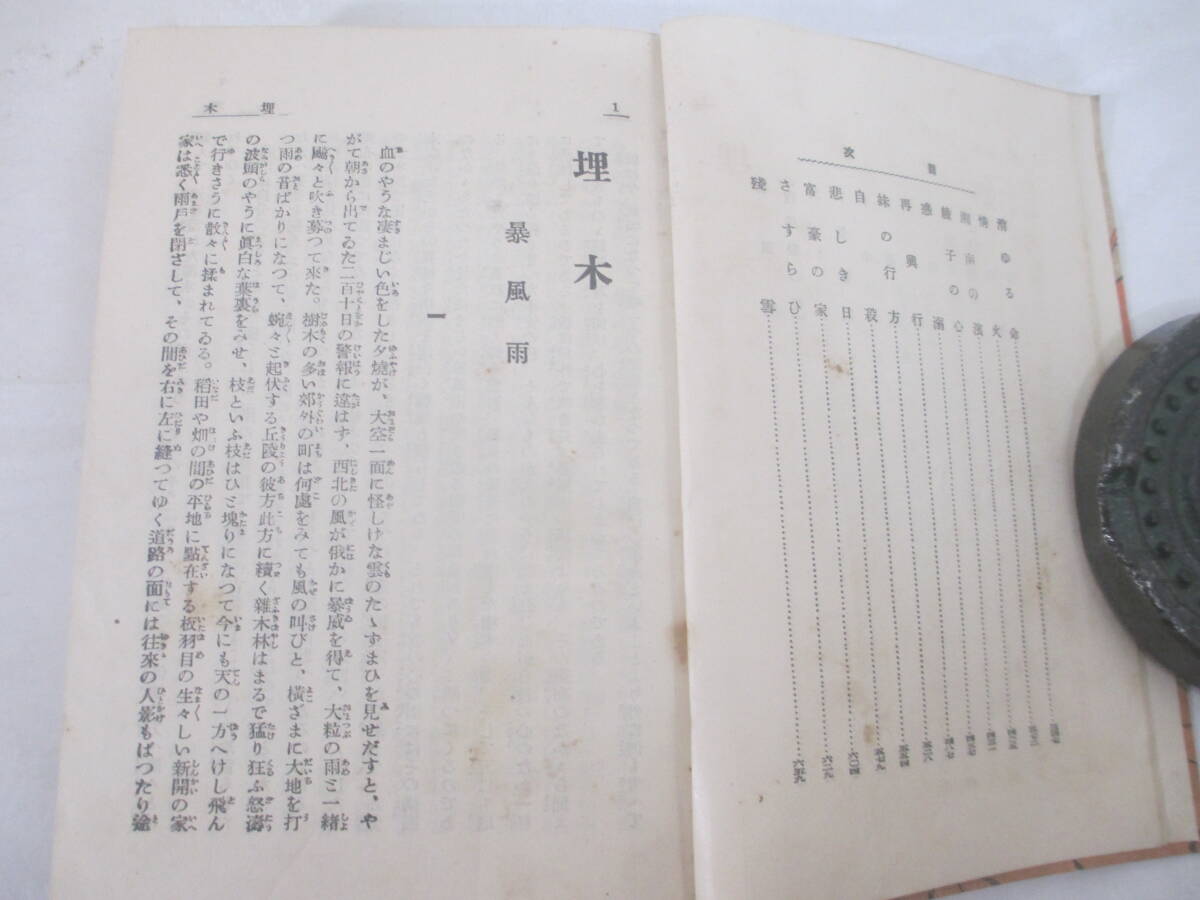 目次
ゆる
情火
の
綾子の心
惑溺
再興行
妹の行方
自殺
悲しき日
富豪の家 六〇四
さすらひ 六二九
殘雪 六五九
1
埋木
埋木
暴風雨
一
血のやうな凄まじい色をした夕燒が、大空一面に怪しげな雲のたゝすまひを見せだすと、や
がて朝から出てゐた二百十日の警報に違はず、西北の風が俄かに暴威を得て、大粒の雨と一緒
に颺々と吹き募つて來た。樹木の多い郊外の町は何處をみても風の叫びと、橫ざまに大地を打
つ雨の音ばかりになつて、蜿々と起伏する丘陵の彼方此方に續く雜木林はまるで猛り狂ふ怒濤
の波頭のやうに眞白な葉裏をみせ、枝といふ枝はひと塊りになつて今にも天の一方へけし飛ん
で行きさうに散々に揉まれてゐる。稻田や畑の間の平地に點在する板羽目の生々しい新開の家
家は悉く雨戶を閉ざして、その間を右に左に縫つてゆく道路の面には往來の人影もばつたり途